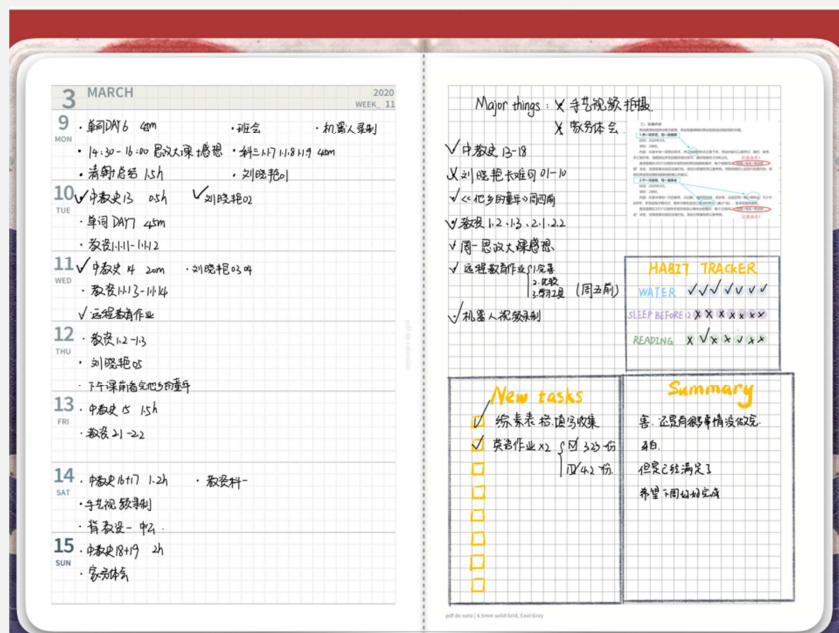 3 MARCH
2020
WEEK_ 11
9 MON
· 单词DAY6 45m
· 班会
· 机器人录制
· 14:30-16:00 思政大课+感想
· 科三1.1.7 1.1.8 1.1.9 45m
· 清朝 1.5h
· 刘晓艳01
10 TUE
中教史13 0.5h
刘晓艳02
· 单词 DAY7 45m
· 教资1.1.11-1.1.12
11 WED
中教史14 20m
· 刘晓艳03 04
· 教资1.1.13-1.1.14
远程教育作业
12 THU
· 教资1.2-1.3
· 刘晓艳05
· 下午课前看完他乡的童年
13 FRI
· 中教史15 1.5h
· 教资2.1-2.2
14 SAT
· 中教史16+17 1.2h
· 教资科一
· 手艺视频录制
· 背教资一
15 SUN
· 中教史18+19 2h
· 家务体会
Major things: 手艺视频拍摄
家务体会
中教史13-18
刘晓艳长难句01-10
《他乡的童年》周四前
教资1.2.1.3.2.1.2.2
周一思政大课感想
远程教育作业
(周五前)
机器人视频录制
HABIT TRACKER
WATER
SLEEP BEFORE 12
READING
New tasks
综素表格填写收集
英语作业x2
3.23一份
4.2一份
Summary
害.还是有很多事情没做完
但是已经满足了
希望下周好好完成
pdf de note | 6.5mm solid Grid, Cool Gray